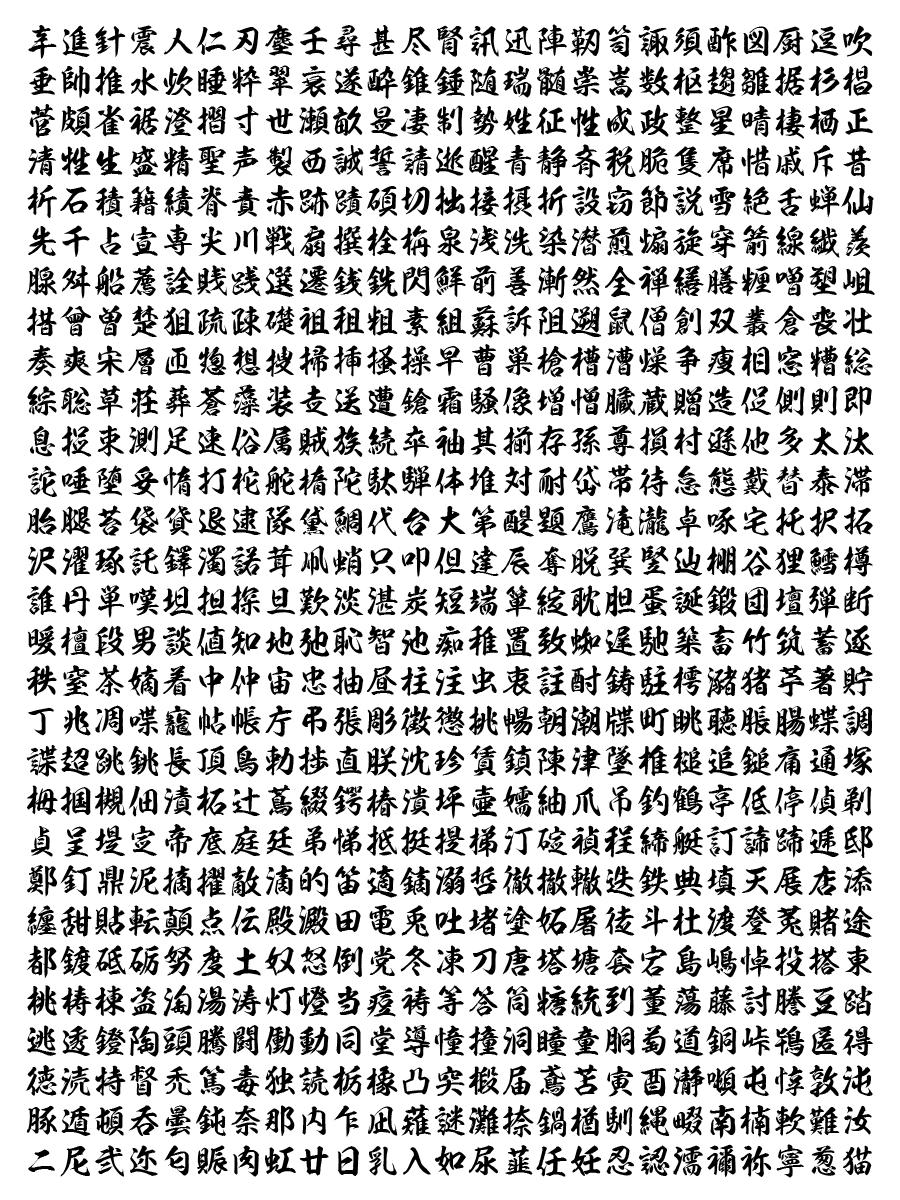 辛進針震人仁刃塵壬尋甚尽腎訊迅陣靭笥諏須酢図厨逗吹
垂帥推水炊睡粋翠衰遂酔錐錘随瑞髄崇嵩数枢趨雛据杉椙
菅頗雀裾澄摺寸世瀬畝是凄制勢姓征性成政整星晴棲栖正
清牲生盛精聖声製西誠誓請逝醒青静斉税脆隻席惜戚斥昔
析石積籍績脊責赤跡蹟碩切拙接摂折設窃節説雪絶舌蝉仙
先千占宣専尖川戦扇撰栓栴泉浅洗染潜煎煽旋穿箭線繊羨
腺舛船薦詮賎践選遷銭銑閃鮮前善漸然全禅繕膳糎噌塑岨
措曾曽楚狙疏疎礎祖租粗素組蘇訴阻遡鼠僧創双叢倉喪壮
奏爽宋層匝惣想捜掃挿掻操早曹巣槍槽漕燥争痩相窓糟総
綜聡草荘葬蒼藻装走送遭鎗霜騒像増憎臓蔵贈造促側則即
息捉束測足速俗属賊族続卒袖其揃存孫尊損村遜他多太汰
詑唾堕妥惰打柁舵楕陀駄騨体堆対耐岱帯待怠態戴替泰滞
胎腿苔袋貸退逮隊黛鯛代台大第醍題鷹滝瀧卓啄宅托択拓
沢濯琢託鐸濁諾茸凧蛸只叩但達辰奪脱巽竪辿棚谷狸鱈樽
誰丹単嘆坦担探旦歎淡湛炭短端箪綻耽胆蛋誕鍛団壇弾断
暖檀段男談値知地弛恥智池痴稚置致蜘遅馳築畜竹筑蓄逐
秩窒茶嫡着中仲宙忠抽昼柱注虫衷註酎鋳駐樗瀦猪苧著貯
丁兆凋喋寵帖帳庁弔張彫徴懲挑暢朝潮牒町眺聴脹腸蝶調
諜超跳銚長頂鳥勅捗直朕沈珍賃鎮陳津墜椎槌追鎚痛通塚
栂掴槻佃漬柘辻蔦綴鍔椿潰坪壷嬬紬爪吊釣鶴亭低停偵剃
貞呈堤定帝底庭廷弟悌抵挺提梯汀碇禎程締艇訂諦蹄逓邸
鄭釘鼎泥摘擢敵滴的笛適鏑溺哲徹撤轍迭鉄典填天展店添
纏甜貼転顛点伝殿澱田電兎吐堵塗妬屠徒斗杜渡登菟賭途
都鍍砥砺努度土奴怒倒党冬凍刀唐塔塘套宕島嶋悼投搭東
桃梼棟盗淘湯涛灯燈当痘祷等答筒糖統到董蕩藤討謄豆踏
逃透鐙陶頭騰闘働動同堂導憧撞洞瞳童胴萄道銅峠鴇匿得
徳涜特督禿篤毒独読栃橡凸突椴届鳶苫寅酉瀞噸屯惇敦沌
豚遁頓呑曇鈍奈那内乍凪薙謎灘捺鍋楢馴縄畷南楠軟難汝
二尼弐迩匂賑肉虹廿日乳入如尿韮任妊忍認濡禰祢寧葱猫